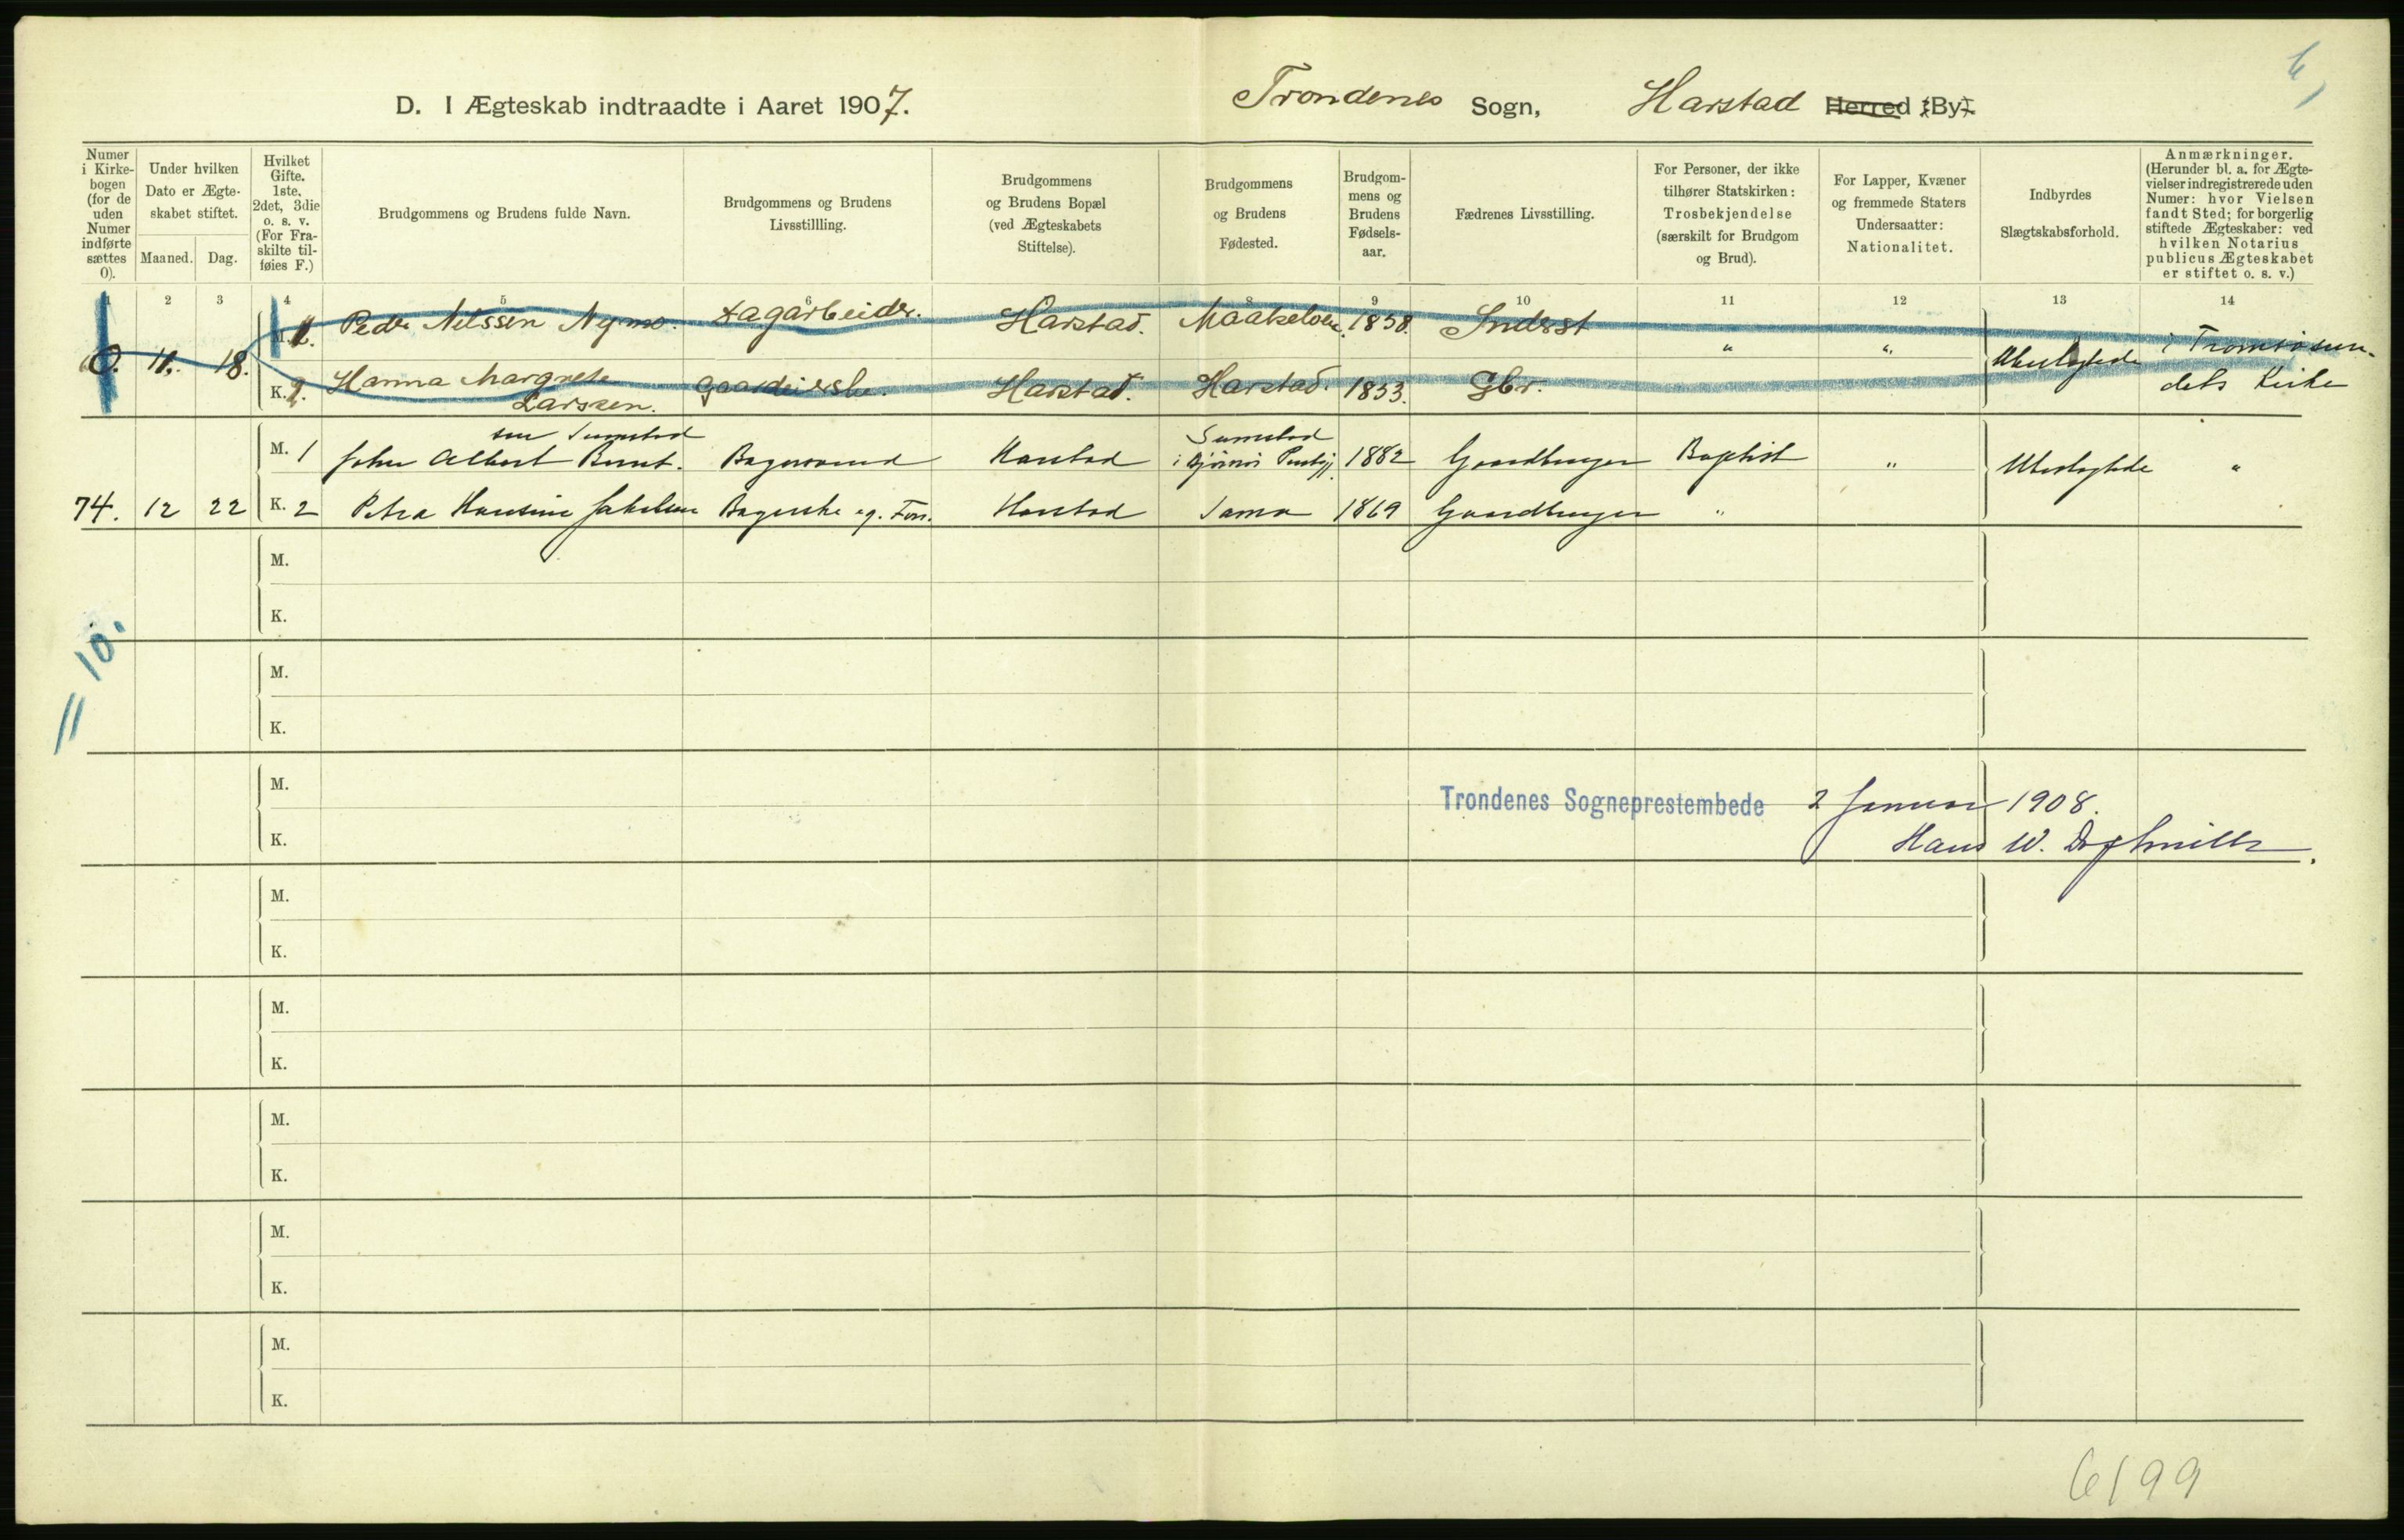 6
D. I Ægteskab indtraadte i Aaret 1907.
Trondenes Sogn, Harstad Herred (By).
Numer
i Kirke-
bogen
(for de
uden
Numer
indførte
sættes
0).
Under hvilken
Dato er Ægte-
skabet stiftet.
Maaned. Dag.
Hvilket
Gifte.
1ste,
2det, 3die
o. s. v.
(For Fra-
skilte til-
føies F.)
Brudgommens og Brudens fulde Navn.
Brudgommens og Brudens
Livsstillling.
Brudgommens
og Brudens Bopæl
(ved Ægteskabets
Stiftelse).
Brudgommens
og Brudens
Fødested.
Brudgom-
mens og
Brudens
Fødsels-
aar.
Fædrenes Livsstilling.
For Personer, der ikke
tilhører Statskirken:
Trosbekjendelse
(særskilt for Brudgom
og Brud).
For Lapper, Kvæner
og fremmede Staters
Undersaatter:
Nationalitet.
Indbyrdes
Slægtskabsforhold.
Anmærkninger.
(Herunder bl. a. for Ægte-
vielser indregistrerede uden
Numer: hvor Vielsen
fandt Sted; for borgerlig
stiftede Ægteskaber: ved
hvilken Notarius
publicus Ægteskabet
er stiftet o. s. v.)
1 2 3 4 5 6 8 9 10 11 12 13 14
M. Peder Nilssen Nymo. Dagarbeider. Harstad. Maalselven. 1858. Inderst " "
0. 11. 18. Ubeslægtede i Tromsøsun-
K. 2. Hanna Margrete Gaardeierske. Harstad. Harstad. 1853. Gbr. dets Kirke
Larssen.
M. 1 John Albert Bernt- Bagersvend Harstad i Bjørnør Prestgj. 1882 Gaardbruger Baptist " Ubeslægtede "
sen Sumstad
Sumstad
74. 12 22 K. 2 Petra Hansine Jakobsen Bagerske eg. Forr. Harstad Sama 1869 Gaardbruger "
M.
K.
= 10.
M.
K.
M.
Trondenes Sogneprestembede 2 Januar 1908.
K.
Hans W.
M.
K.
M.
K.
M.
K.
M.
K.
M.
K.
6199